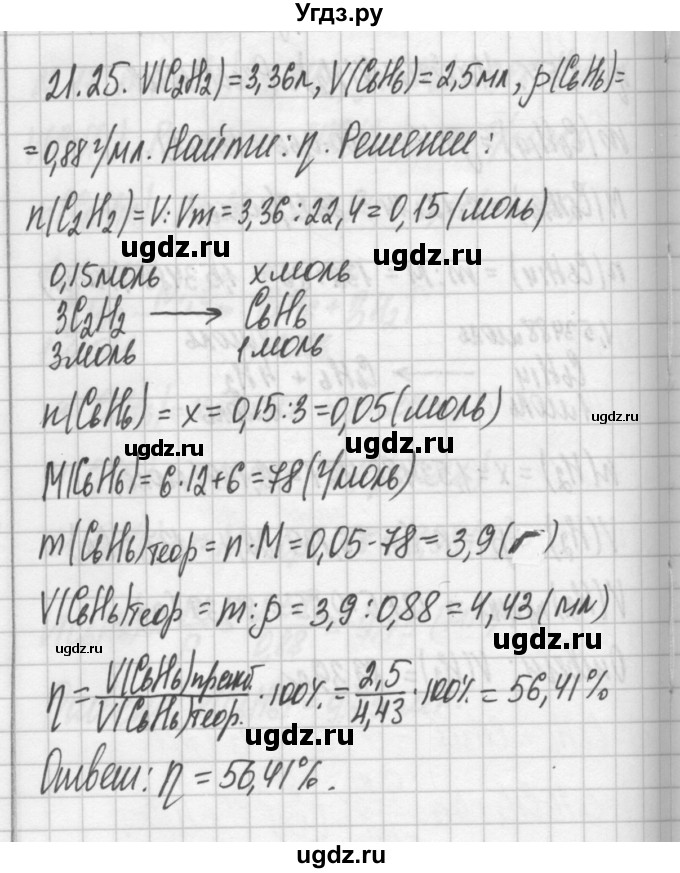 Угдз.ру
21.25. V(C₂H₂)=3,36л, V(C₆H₆)=2,5мл, ρ(C₆H₆)=
=0,88 г/мл. Найти: η. Решение:
n(C₂H₂)=V:Vm=3,36:22,4=0,15(моль)
ugdz.ru ugdz.ru
0,15моль xмоль
3C₂H₂ ⟶ C₆H₆
3моль 1моль
n(C₆H₆)=x=0,15:3=0,05(моль)
ugdz.ru
ugdz.ru ugdz.ru
M(C₆H₆)=6·12+6=78(г/моль)
m(C₆H₆)теор=n·M=0,05·78=3,9(г)
V(C₆H₆)теор=m:ρ=3,9:0,88=4,43(мл)
ugdz.ru ugdz.ru
η=V(C₆H₆)практ./V(C₆H₆)теор.·100%=2,5/4,43·100%=56,41%
ugdz.ru
Ответ: η=56,41%.
ugdz.ru
ugdz.ru